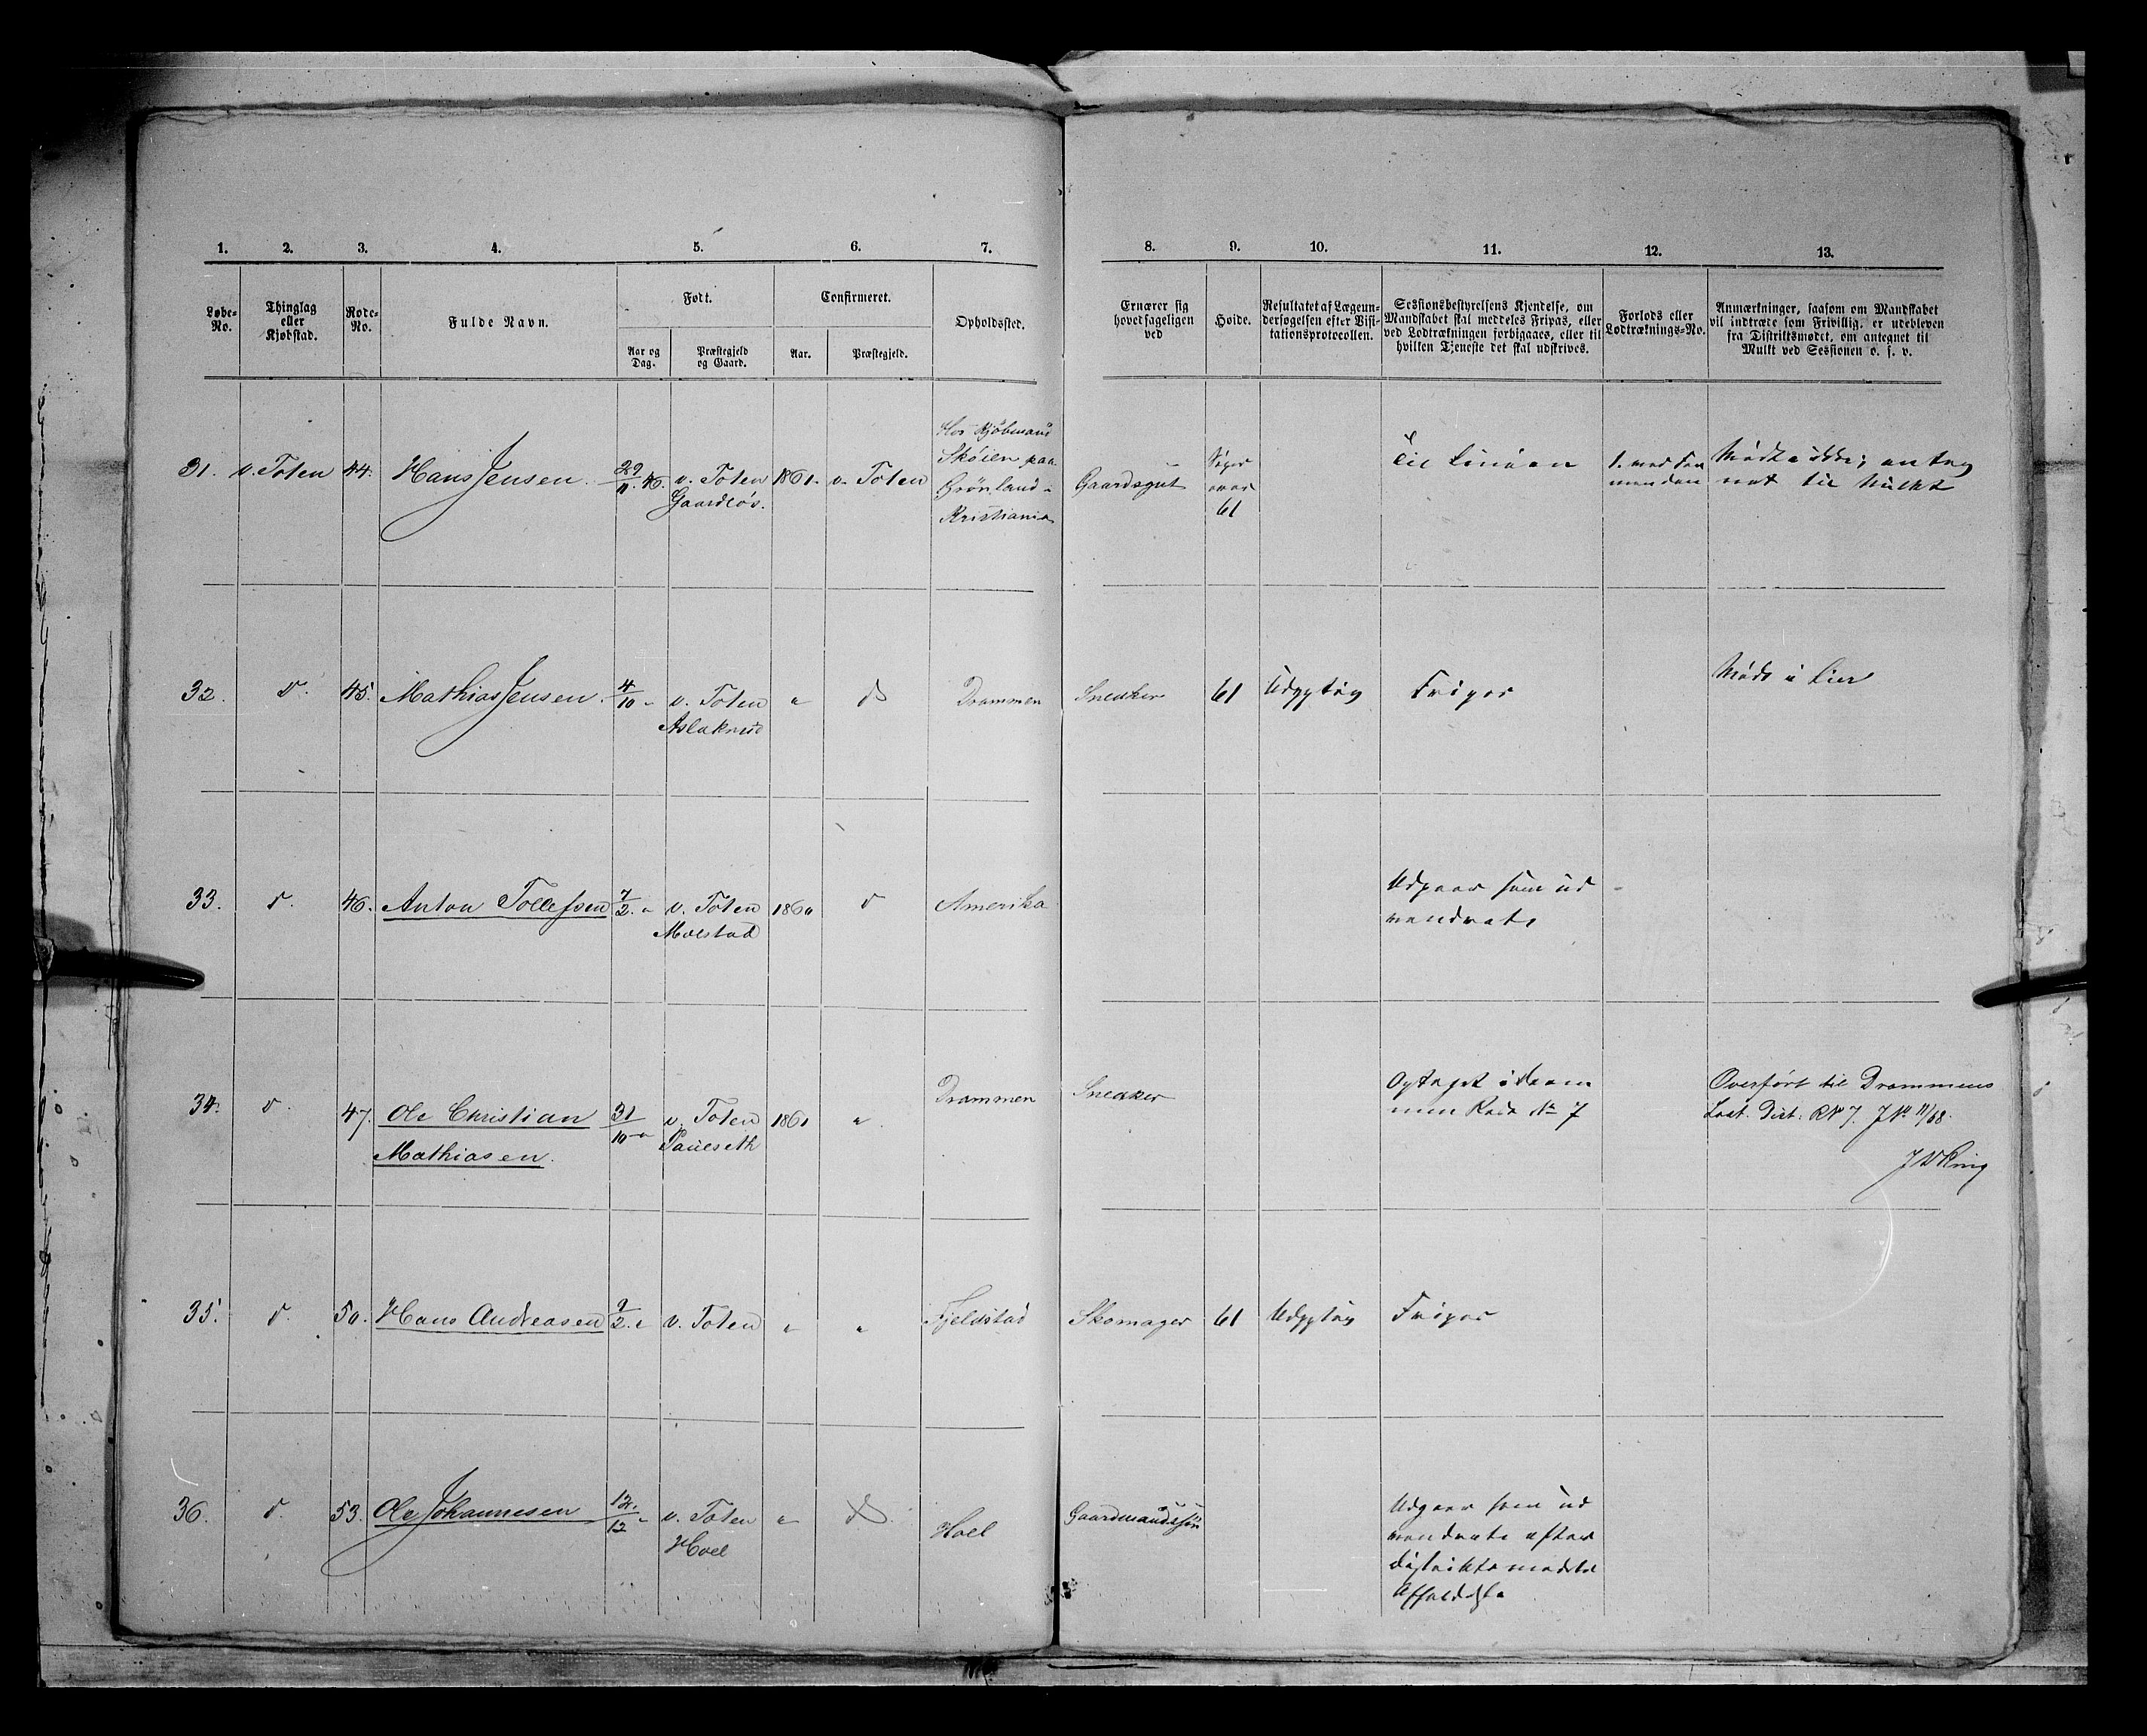 1. 2. 3. 4. 5. 6. 7. 8. 9. 10. 11. 12. 13.
Løbe-No.
Thinglag eller Kjøbstad.
Rode-No.
Fulde Navn.
Født.
Aar og Dag.
Præstegjeld og Gaard.
Confirmeret.
Aar.
Præstegjeld.
Opholdssted.
Ernærer sig hovedsageligen ved
Hoide.
Resultatet af Lægeun-
dersøgelsen efter Visi-
tationsprotocollen.
Sessionsbestyrelsens Kjendelse, om
Mandskabet skal meddeles Fripas, eller
ved Lodtrækningen forbigaaes, eller til
hvilken Tjeneste det skal udskrives.
Forlods eller
Lodtræknings-No.
Anmærkninger, saasom om Mandskabet
vil indtræde som Frivillig, er udebleven
fra Distriktsmødet, om antegnet til
Mulkt ved Sessionen o. s. v.
31. v. Toten 44. Hans Jensen. 29/11. 46. v. Toten 1861. v. Toten
Gaardløs.
Hos Kjøbmand
Skøien paa
Grønland i
Kristiania
Gaardsgut
Siger
over
61
Til Linien
1. med For
manden
Mødte ikke; anteg
net til Mulkt
32. d. 45. Mathias Jensen. 4/10 " v. Toten " do Drammen Snedker 61 Udygtig Fripas Mødt i Lier
Aslaksrud
33. d. 46. Anton Tollefsen 7/2. " v. Toten 1860 d Amerika
Molstad
Udgaar som ud
vandrede
34. d. 47. Ole Christian 31/10 " v. Toten 1861 " Drammen Snedker
Mathiasen.
Optaget i Dram
men Rode No 7
Overført til Drammens
Dist. R No 7. J No 11/68.
35. d. 50. Hans Andreasen 9/2. " v. Toten " " Fjeldstad Skomager 61 Udygtig Fripas
36. d. 53. Ole Johannesen 12/12 " v. Toten " do. Hoel Gaardmandssøn
Hoel
Udgaar som ud
vandrede efter
distriktsmødets